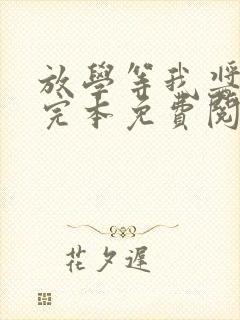 放學等我
完本免費閱
花夕遲